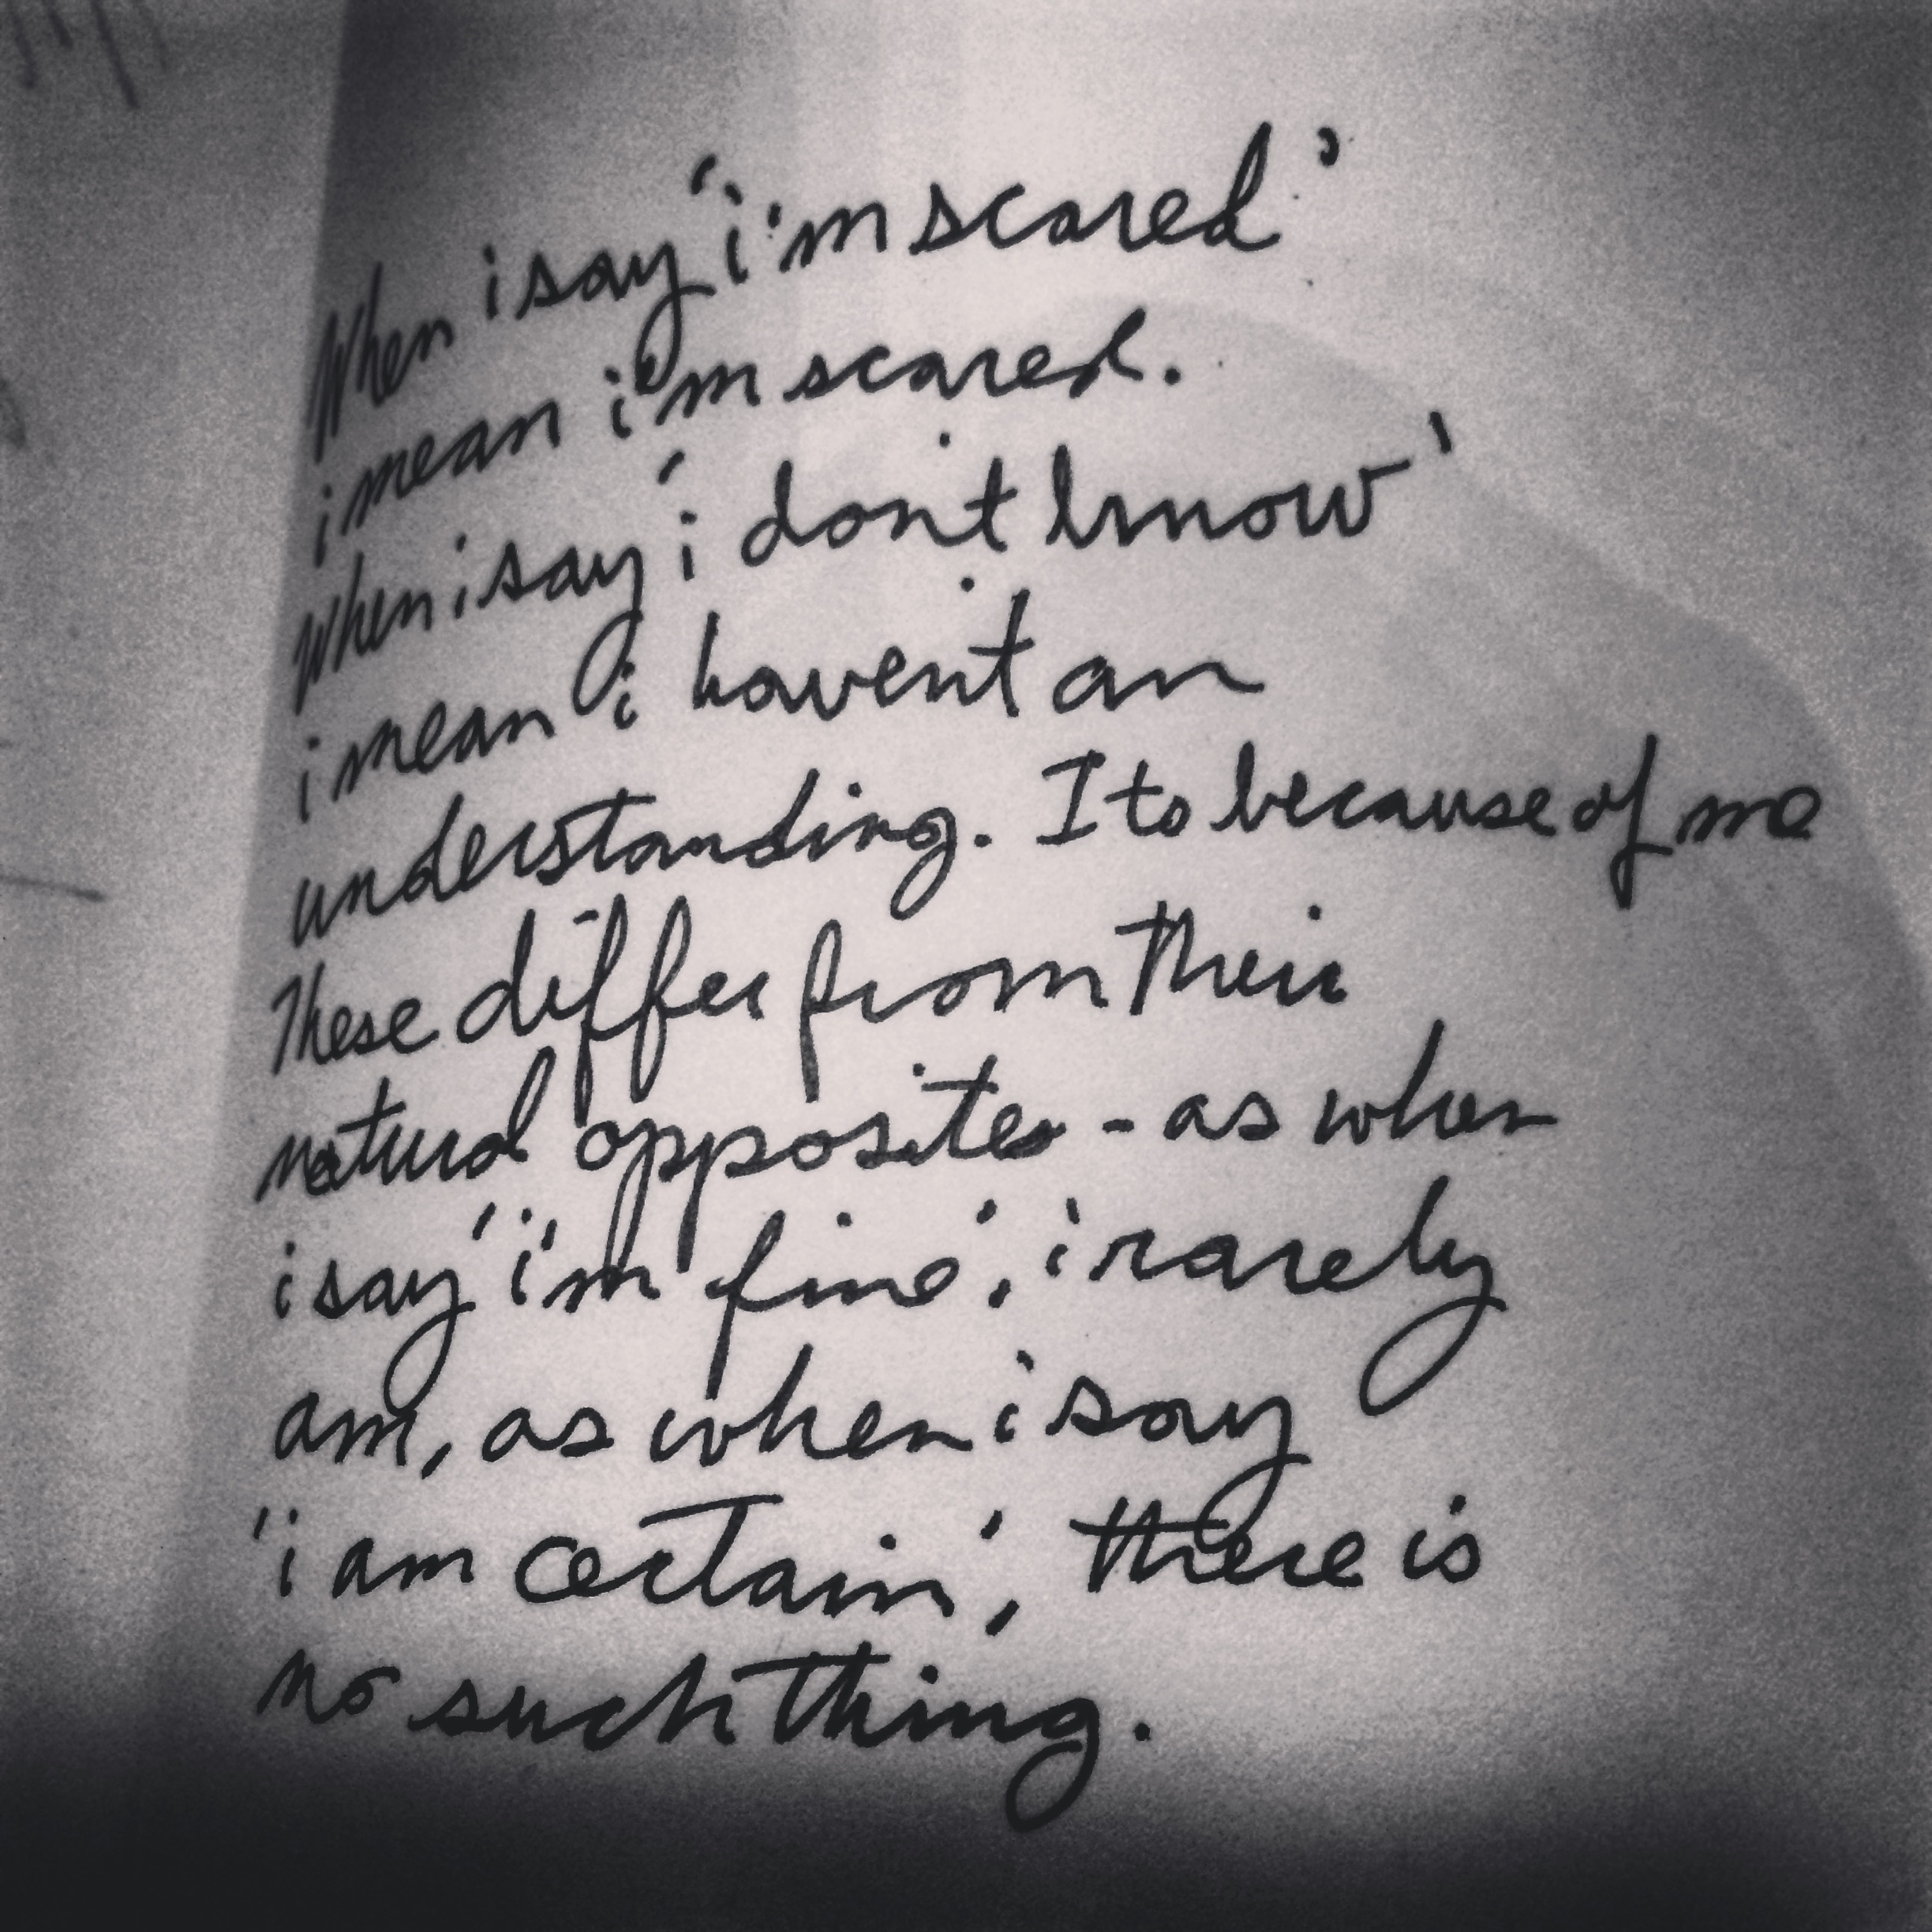 When i say 'i'm scared'
i mean i'm scared.
When i say 'i don't know'
i mean i haven't an
understanding. Its because of me
These differ from their
natural opposites - as when
i say 'i'm fine', i rarely
am, as when i say
'i am certain', there is
no such thing.